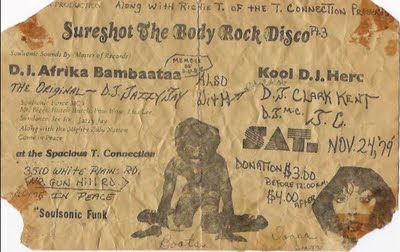 PRODUCTION ALONG WITH RICHIE T. OF THE T. CONNECTION
Sureshot The Body Rock Disco Pt3
Soulsonic Sounds By (Master of Records)
D.J. Afrika Bambaataa
THE ORIGINAL - D.J. JAZZY JAY
Soulsonic Force MC's
Mr. Biggs, Hutch Hutch, Pow Wow,
Sundance, Ice Ice, Jazzy Jay
Along with the Mighty Zulu Nation
Come in Peace
at the Spacious T. Connection
3510 WHITE PLAINS RD.
(NR. GUN HILL RD.)
COME IN PEACE
"Soulsonic Funk
ALSO
WITH
Kool D.J. Herc
D.J. CLARK KENT
D.J. M.C. J.C.
SAT. NOV. 24, '79
DONATION $3.00
BEFORE 12:00 A.M.
$4.00 AFTER